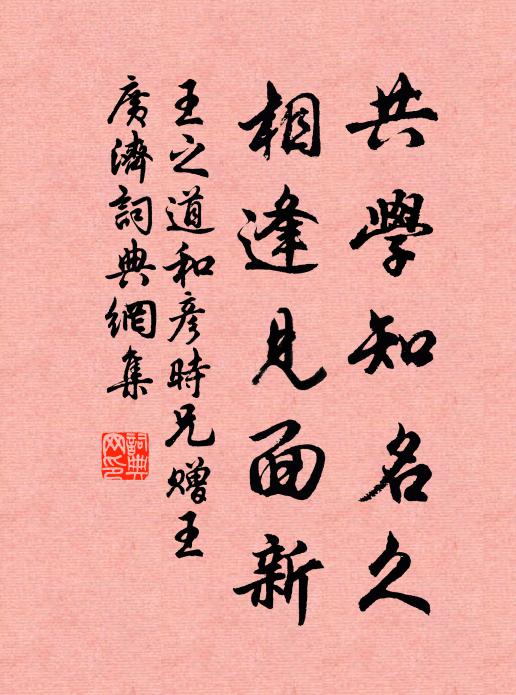 共學知名久
相逢見面新
王之道和彦時兄贈王
廣濟詞典網集
詞典网印